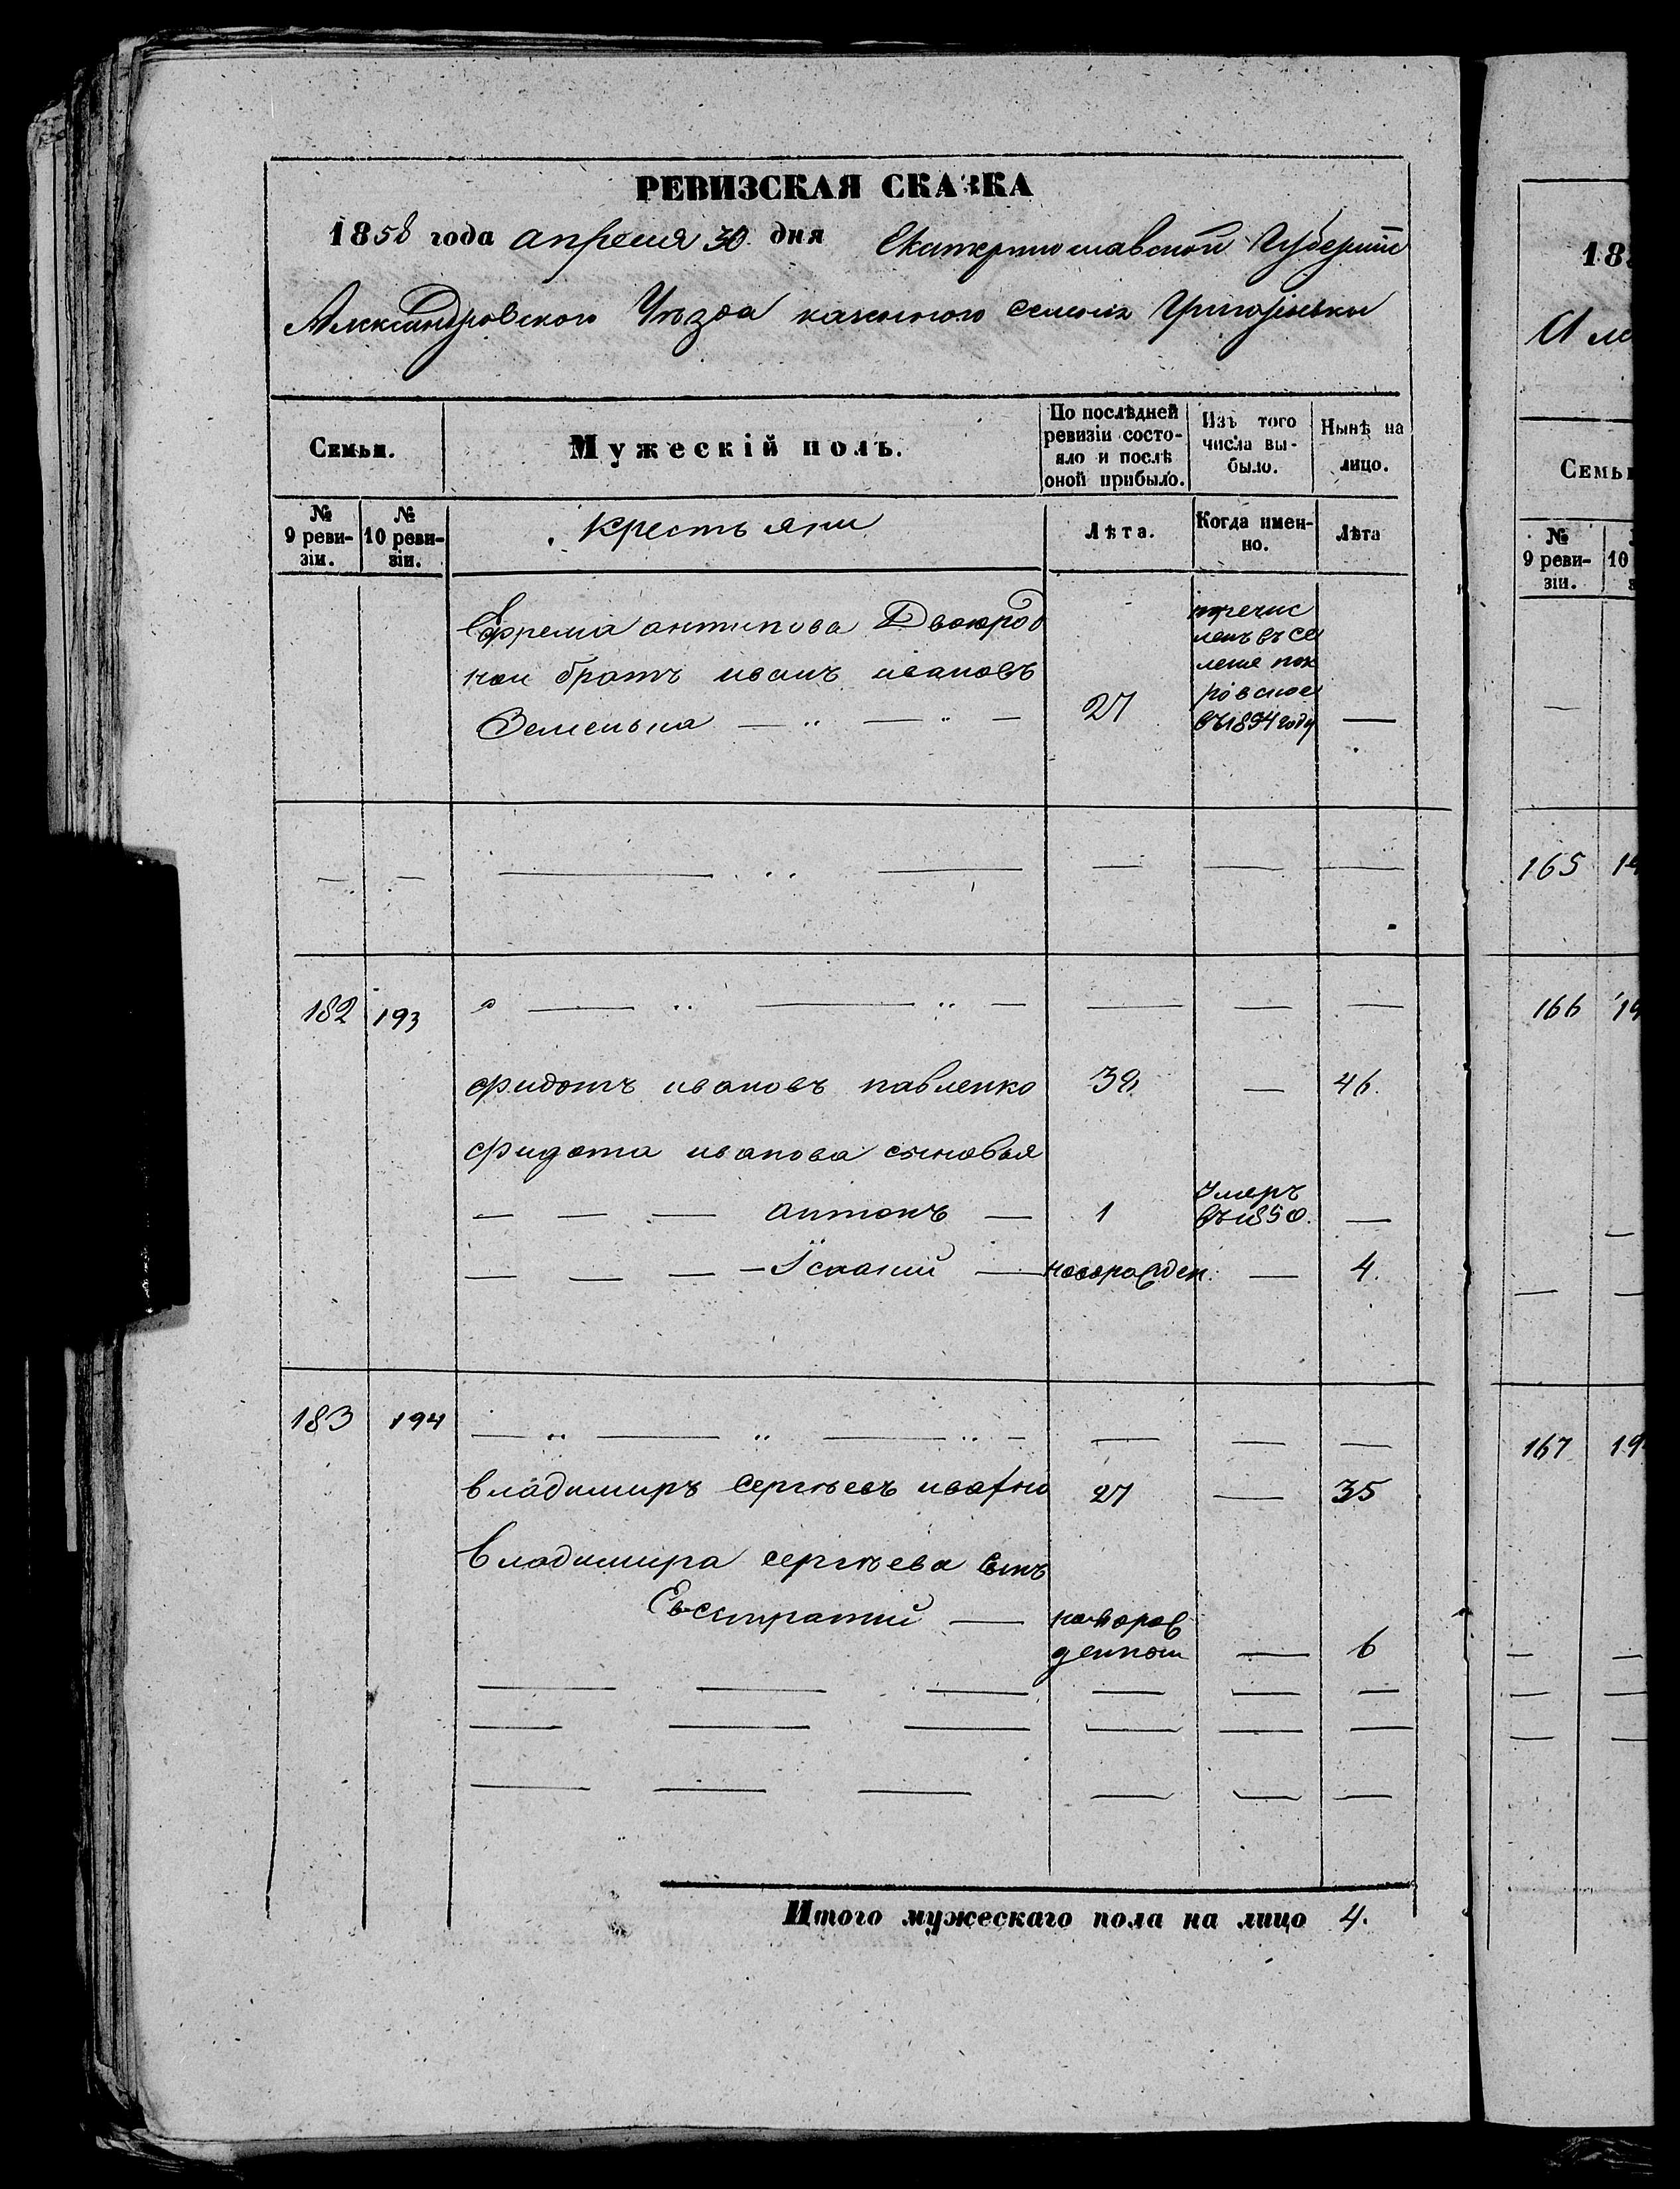 РЕВИЗСКАЯ СКАЗКА
1858 года апреля 30 дня Екатеринославской Губернiи
Александровского Уѣзда казенного селенiя Григорьевки
Семьи.
Мужескiй полъ.
По послѣдней ревизiи состояло и послѣ оной прибыло.
Изъ того числа выбыло.
Нынѣ на лицо.
№ 9 ревизiи.
№ 10 ревизiи.
крестьяни
Лѣта.
Когда именно.
Лѣта
Ефрема антипова Двоюрод
ной братъ иванъ ивановъ
Земенька — " — " — 27 —
перечис
ленъ въ се
ление пок
ровское
въ 1854 году
— — — — — — —
182 193 — — — — —
фидотъ ивановъ павленко 38 — 46.
фидота иванова сыновья
— — — антонъ — 1 Умеръ въ 1850. —
— — — — Iсакий — новорожден. — 4.
183 194 — — — — — —
владимиръ сергѣевъ 27 — 35
владимира сергѣева сынъ
Евстратий — новорож
денной — 6
— — — — — —
— — — — — —
— — — — — —
Итого мужескаго пола на лицо 4.
18
Але
Семьи
№ 9 ревизiи.
10
165
166 19
167 19